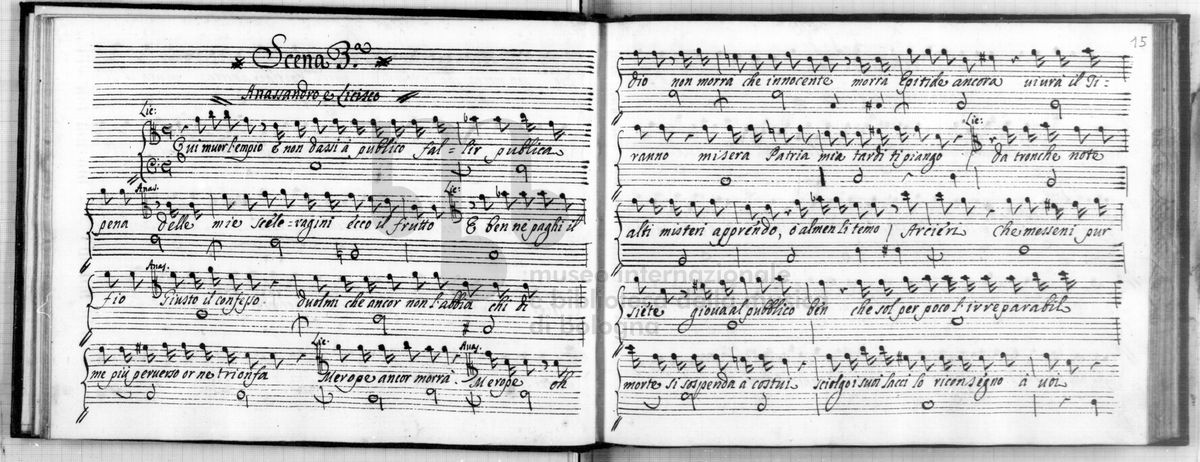 Scena 3.a
Anassandro, e Licisco
Lic:
Qui muor l'empio E non dassi a publico fal= lir publica
Anas. Lic:
pena delle mie scele=ragini ecco il frutto E ben ne paghi il
Anas.
fio Giusto il confesso. duolmi che ancor non l'abbia chi di
Lic: Anas.
me più perverso or ne trionfa Merope ancor morrà. Merope oh
museo internazionale
e biblioteca della musica
di bologna
15
dio non morrà che innocente morrà Epitide ancora vivrà il Ti=
Lic:
ranno misera Patria mia tardi ti piango da tronche note
alti misteri apprendo, o almen li temo Arcieri che messeni pur
siete giova al pubblico ben che sol per poco l'irreparabil
morte si sospenda a costui sciolgo i suoi lacci lo riconsegno a voi